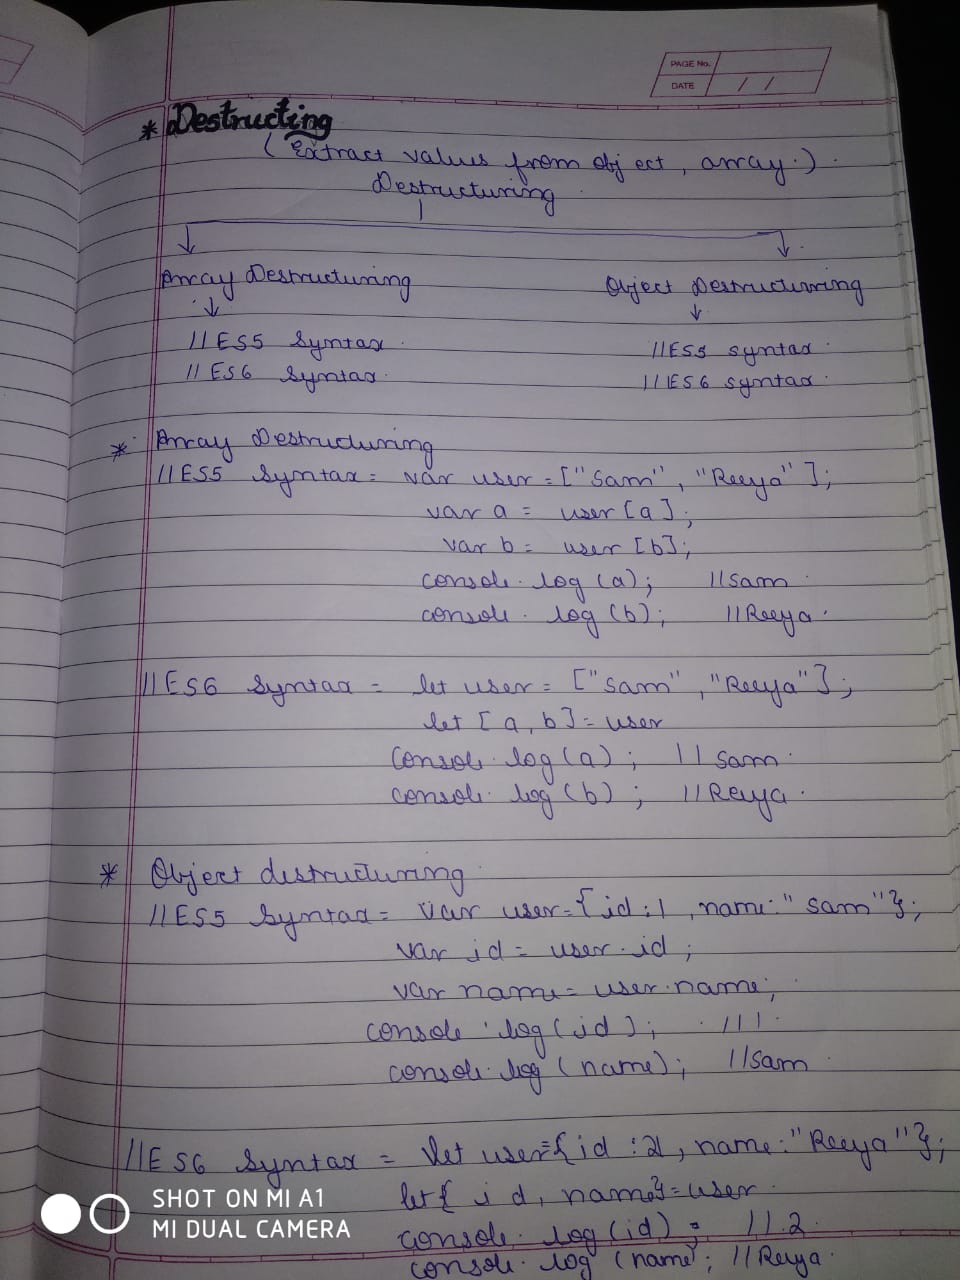 PAGE No.
DATE / /
* Destructing
(Extract values from object, array.)
Destructuring
Array Destructuring
Object Destructurring
//ES5 Syntax
//ES5 syntax
//ES6 Syntax
//ES6 syntax
* Array Destructuring
//ES5 Syntax = var user = ["Sam", "Reeya"];
var a = user [a];
var b = user [b];
console.log (a); //Sam
console.log (b); //Reeya
//ES6 Syntax = let user = ["Sam", "Reeya"];
let [a, b] = user
console.log (a); //Sam
console.log (b); //Reeya
* Object destructuring
//ES5 Syntax = var user = {id:1, name:"Sam"};
var id = user.id;
var name = user.name;
console.log (id); //1
console.log (name); //Sam
//ES6 Syntax = let user = {id:2, name:"Reeya"};
let { id, name} = user
console.log (id); //2
console.log (name); //Reeya
SHOT ON MI A1
MI DUAL CAMERA